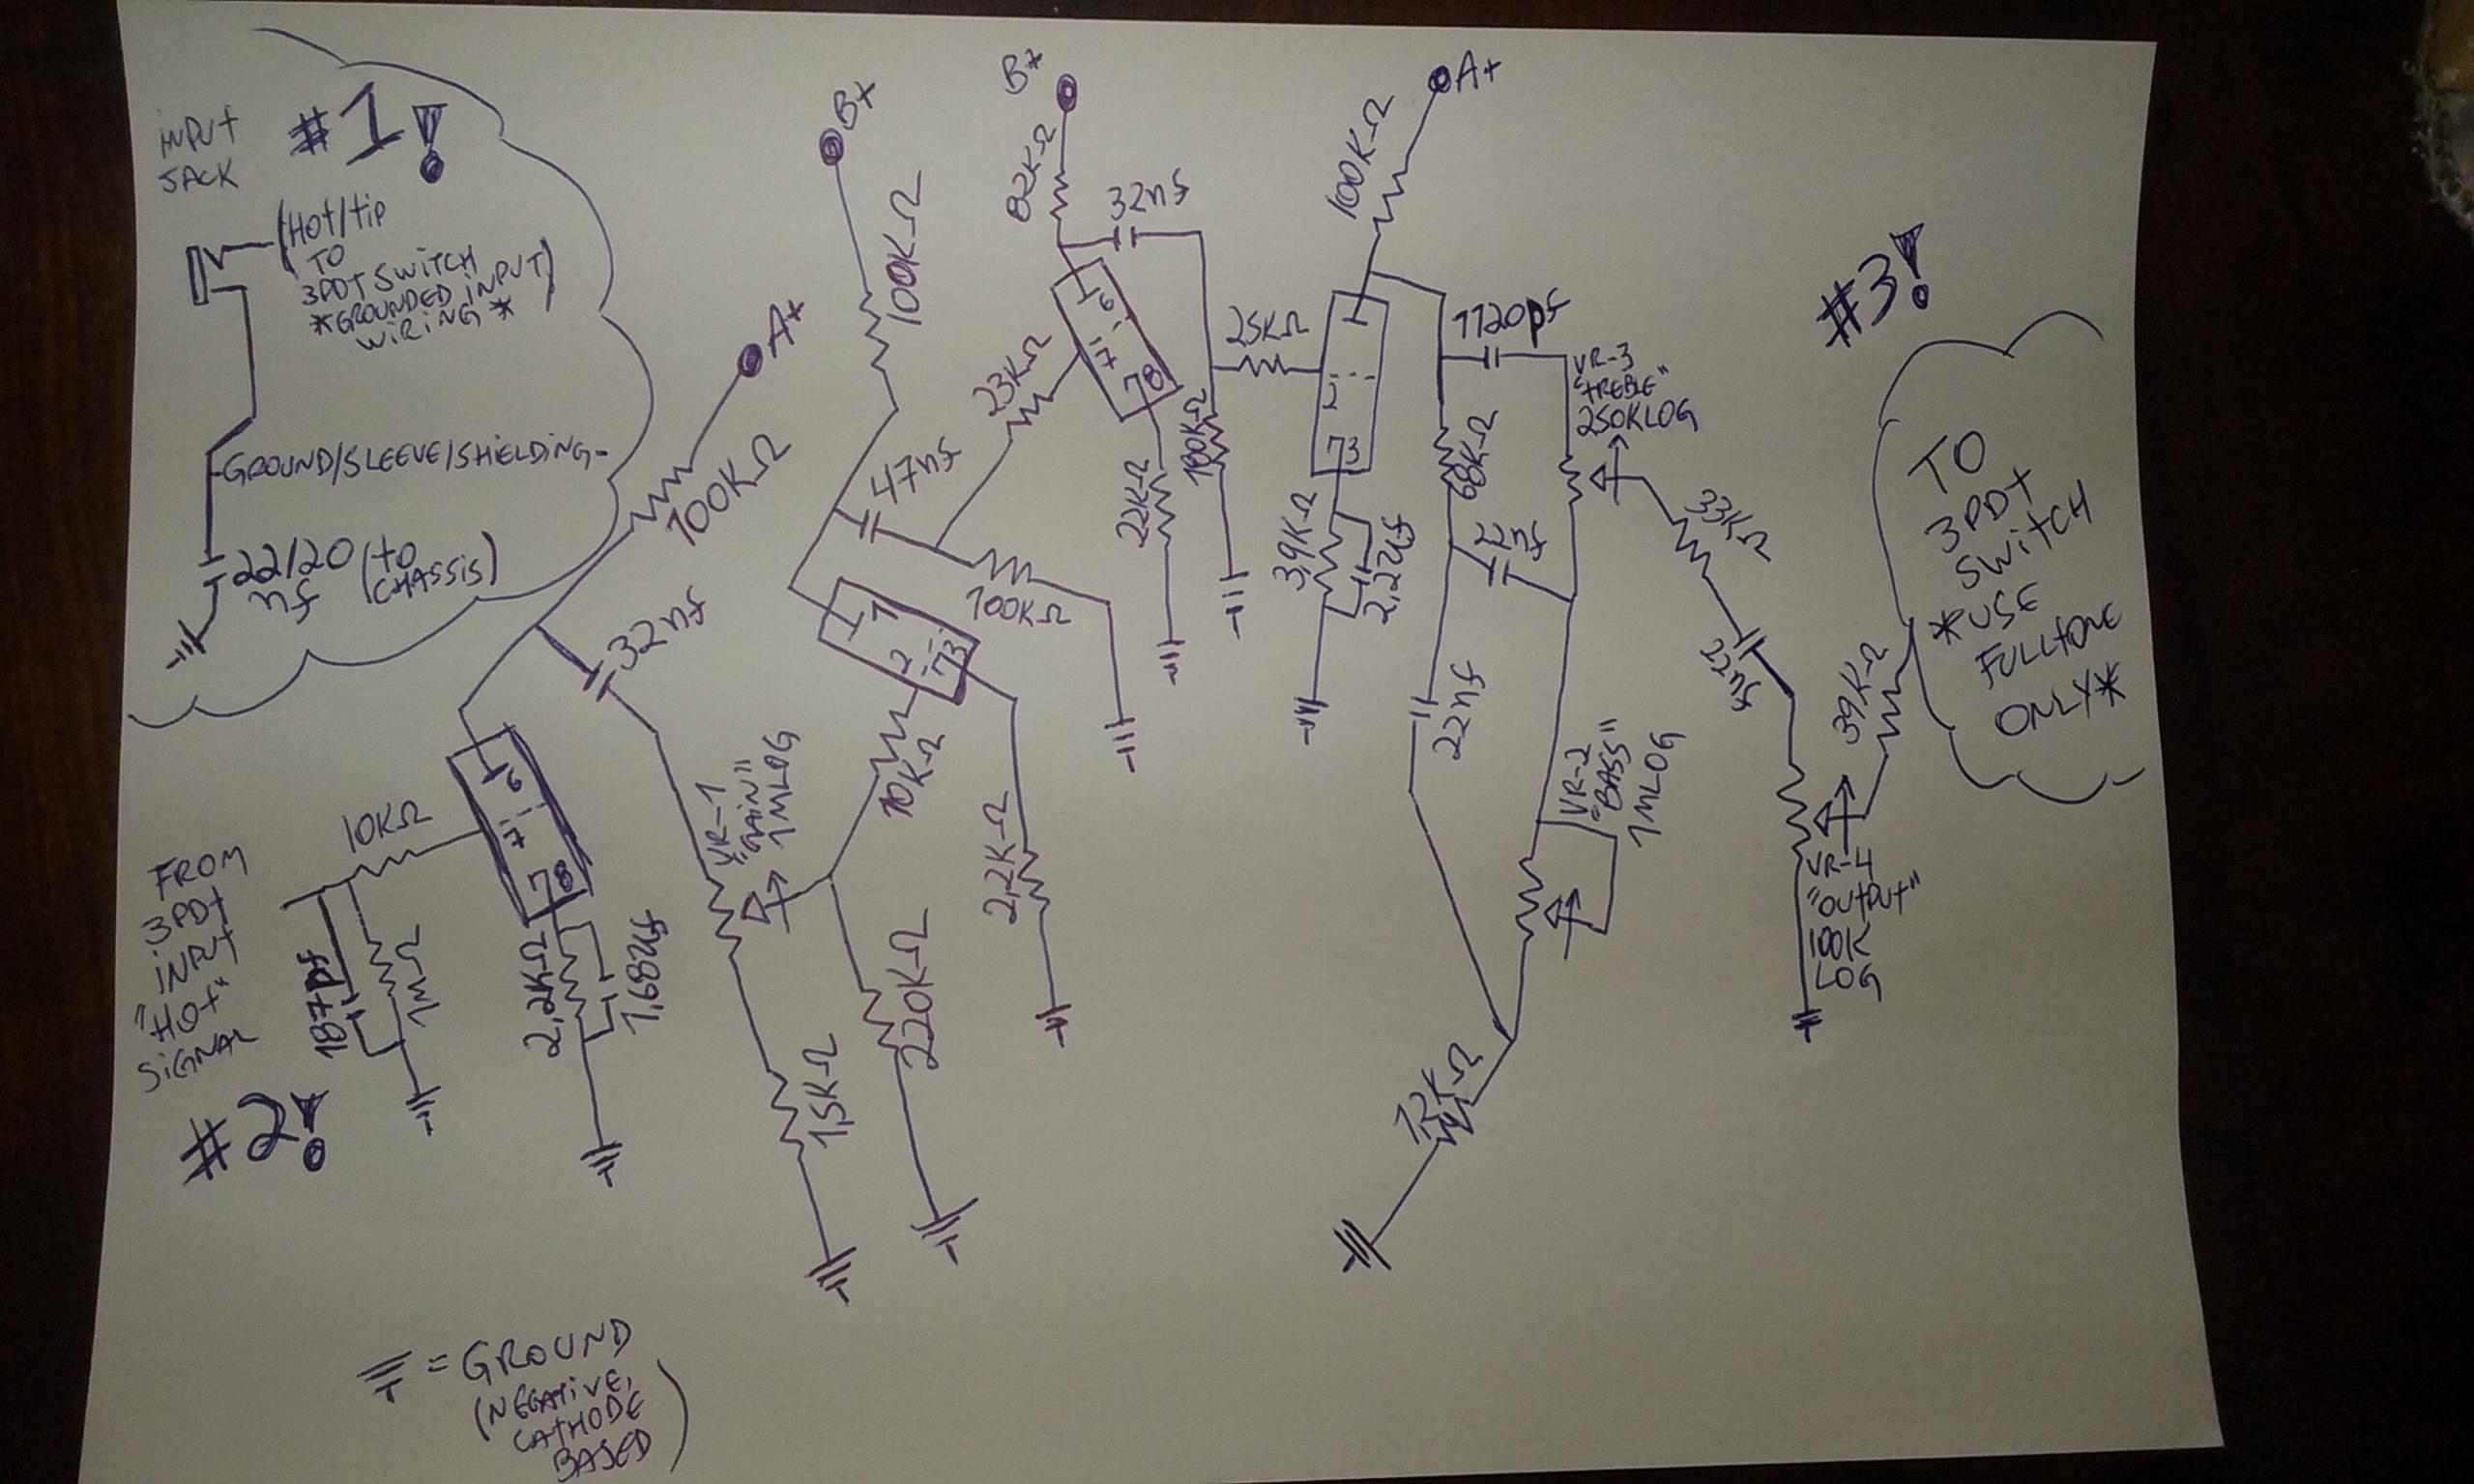 INPUT
JACK
#1!
(Hot/tip
TO
3PDT SWITCH
*GROUNDED INPUT)
WIRING*
-GROUND/SLEEVE/SHIELDING-
22/20 (to
nf CHASSIS)
A+
100KΩ
32nf
6
7
8
10KΩ
FROM
3PDT
INPUT
"HOT"
SIGNAL
#2!
187pf
1MΩ
2,2KΩ
1,68uf
VR-1
"GAIN"
1MLOG
15KΩ
220KΩ
10KΩ
B+
100KΩ
47nf
100KΩ
1
2
3
2,2KΩ
23KΩ
B+
82KΩ
32nf
6
7
8
22KΩ
100KΩ
25KΩ
A+
100KΩ
1
2
3
3,9KΩ
2,2uf
1120pf
68KΩ
22nf
VR-3
"tREBLE"
250KLOG
VR-2
"BASS"
1MLOG
12KΩ
33KΩ
39KΩ
VR-4
"OUTPUT"
100K
LOG
#3!
TO
3PDT
SWitCH
*USE
FULLTONE
ONLY*
= GROUND
(NEGATIVE,
CATHODE
BASED)